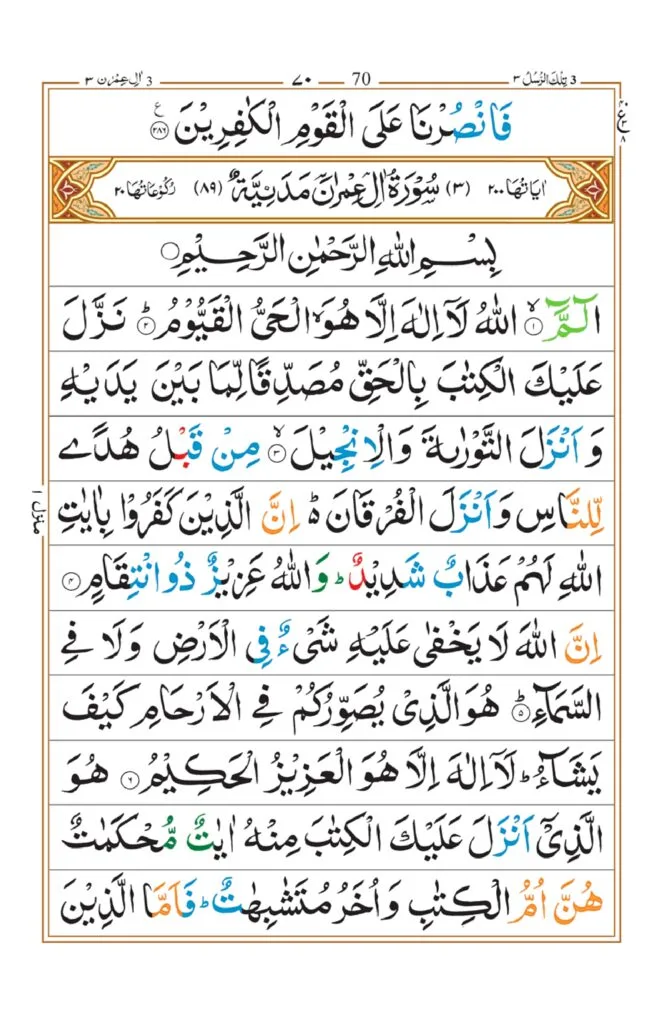 3 تِلْكَ الرُّسُل ٣ 70 ٧٠ 3 اٰلِ عِمْرٰن ٣
فَانْصُرْنَا عَلَى الْقَوْمِ الْكٰفِرِيْنَ ﴿۲۸۶﴾ ع
اٰیَاتُهَا ٢٠٠ (٣) سُوْرَةُ اٰلِ عِمْرٰنَ مَدَنِيَّةٌ (٨٩) رُكُوْعَاتُهَا ٢٠
بِسْمِ اللّٰهِ الرَّحْمٰنِ الرَّحِيْمِ
الٓمَّٓ ﴿۱﴾ۙ اللّٰهُ لَاۤ اِلٰهَ اِلَّا هُوَ ۙ الْحَىُّ الْقَيُّوْمُ ؕ﴿۲﴾ نَزَّلَ
عَلَيْكَ الْكِتٰبَ بِالْحَقِّ مُصَدِّقًا لِّمَا بَيْنَ يَدَيْهِ
وَ اَنْزَلَ التَّوْرٰىةَ وَالْاِنْجِيْلَ ۙ﴿۳﴾ مِنْ قَبْلُ هُدًے
لِّلنَّاسِ وَاَنْزَلَ الْفُرْقَانَ ؕ۬ اِنَّ الَّذِيْنَ كَفَرُوْا بِاٰيٰتِ
اللّٰهِ لَهُمْ عَذَابٌ شَدِيْدٌ ؕ وَاللّٰهُ عَزِيْزٌ ذُوانْتِقَامٍ ﴿۴﴾
اِنَّ اللّٰهَ لَا يَخْفٰى عَلَيْهِ شَىْءٌ فِى الْاَرْضِ وَلَا فِے
السَّمَآءِ ؕ﴿۵﴾ هُوَ الَّذِىْ يُصَوِّرُكُمْ فِے الْاَرْحَامِ كَيْفَ
يَشَآءُ ؕ لَاۤ اِلٰهَ اِلَّا هُوَ الْعَزِيْزُ الْحَكِيْمُ ﴿۶﴾ هُوَ
الَّذِىْۤ اَنْزَلَ عَلَيْكَ الْكِتٰبَ مِنْهُ اٰيٰتٌ مُّحْكَمٰتٌ
هُنَّ اُمُّ الْكِتٰبِ وَاُخَرُ مُتَشٰبِهٰتٌ ؕ فَاَمَّا الَّذِيْنَ
منزل ١